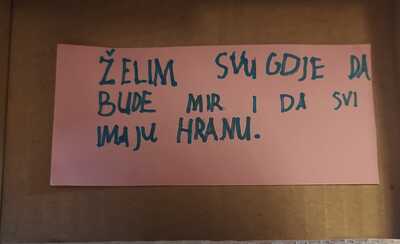 ŽELIM SVUGDJE DA
BUDE MIR I DA SVI
IMAJU HRANU.